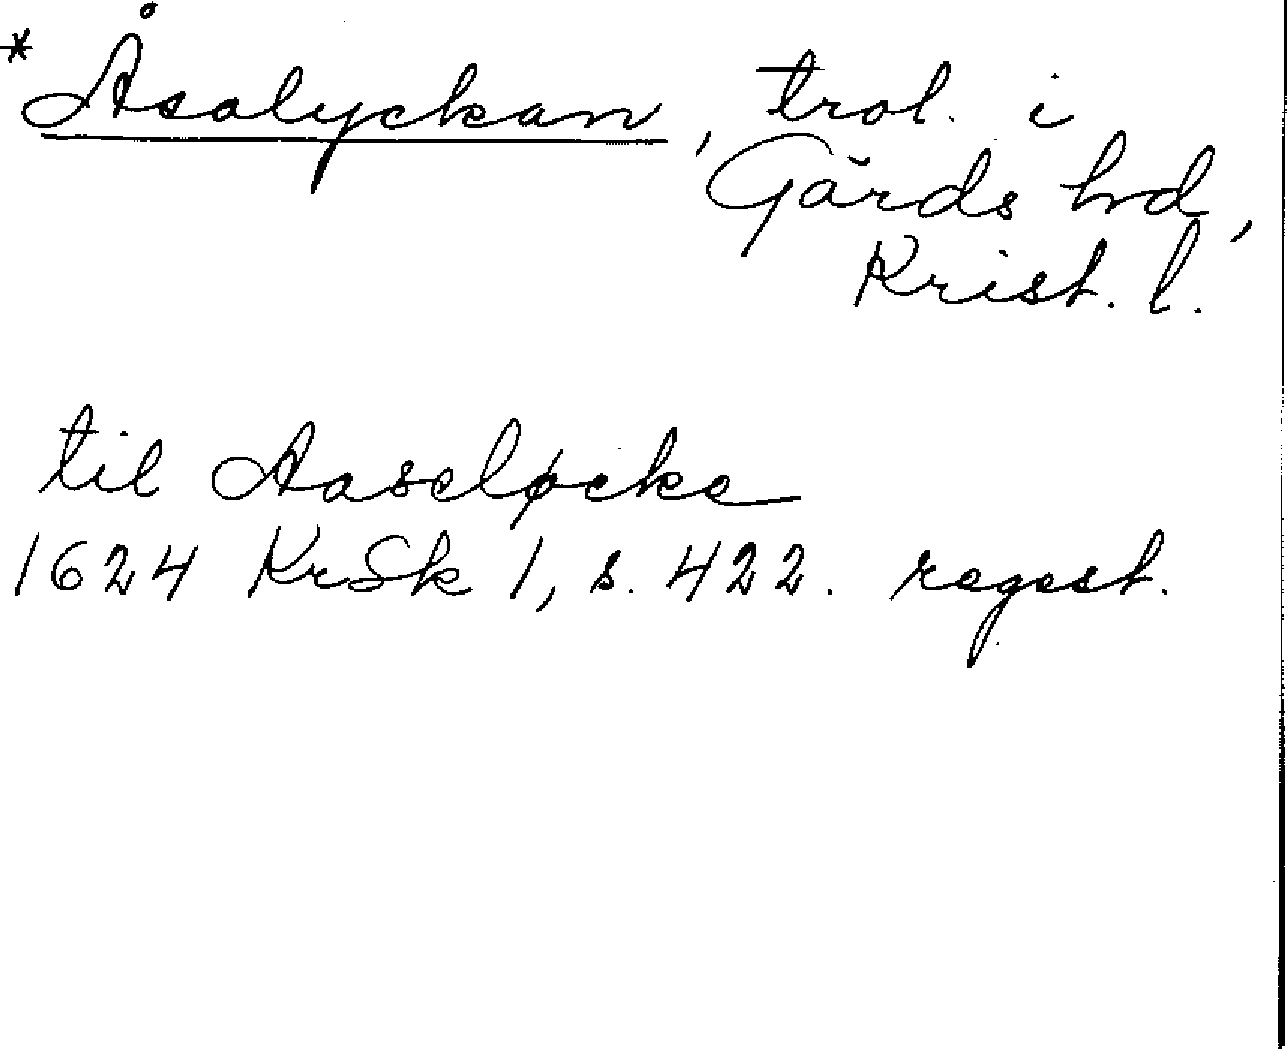 * Åsalyckan, trol. i
Gärds hd,
Krist. l.
til Aaseløcke
1624 KrSk 1, s. 422. regest.